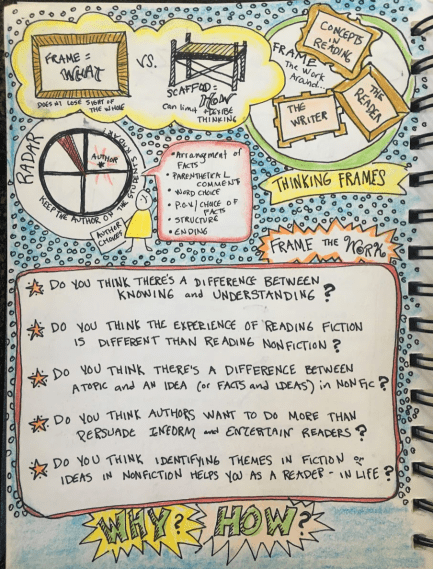 FRAME =
WHAT
DOESN'T LOSE SIGHT OF
THE WHOLE
VS.
SCAFFOLD =
HOW
Can limit FLEXIBLE
THINKING
FRAME
the Work
Around...
CONCEPTS
in
READING
THE
READER
THE
WRITER
THINKING FRAMES
RADAR
AUTHOR
KEEP THE AUTHOR ON THE STUDENT'S RADAR!
AUTHOR
CHOICES
• Arrangement of
FACTS
• PARENTHETICAL
COMMENTS
• WORD CHOICE
• P.O.V./CHOICE OF
FACTS
• STRUCTURE
• ENDING
FRAME THE WORK
DO YOU THINK THERE'S A DIFFERENCE BETWEEN
KNOWING and UNDERSTANDING?
DO YOU THINK THE EXPERIENCE OF READING FICTION
IS DIFFERENT THAN READING NONFICTION?
DO YOU THINK THERE'S A DIFFERENCE BETWEEN
A TOPIC and AN IDEA (or FACTS and IDEAS) in NONFIC?
DO YOU THINK AUTHORS WANT TO DO MORE THAN
PERSUADE INFORM and ENTERTAIN READERS?
DO YOU THINK IDENTIFYING THEMES IN FICTION or
IDEAS IN NONFICTION HELPS YOU AS A READER - IN LIFE?
WHY? HOW?